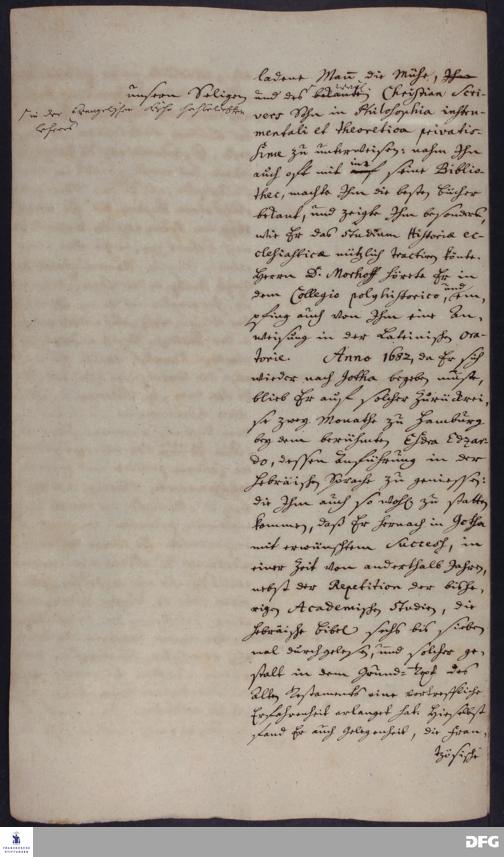 unsern Seligen
in der Evangelischen Kirche hochberühmten
Lehrers
ladene Mann die Mühe,
und des bekanten Christian Scri-
vers Sohn in Philosophia instru-
mentali et theoretica privatis-
sime zu unterweisen: nahm Ihn
auch oft mit in seine Biblio-
thec, machte Ihm die besten Bücher
bekant, und zeigte Ihm besonders,
wie Er das Studium Historiæ ec-
clesiasticæ nützlich tractiren könte.
Herrn D. Morhoff hörete Er in
dem Collegio polyhistorico, und em-
pfing auch von Ihm eine An-
weisung in der Lateinischen Ora-
torie. Anno 1682, da Er sich
wieder nach Gotha begeben muste,
blieb Er auf solcher Zurückrei-
se zwey Monathe zu Hamburg
bey dem berühmten Esdra Edzar-
do, dessen Anführung in der
Hebräischen Sprache zu geniessen:
die Ihm auch so wohl zu statten
kommen, daß Er hernach in Gotha
mit erwünschtem Success, in
einer Zeit von anderthalb Jahren,
nebst der Repetition der bishe-
rigen Academischen Studien, die
Hebräische Bibel sechs bis sieben
mal durchgelesen, und solcher ge-
stalt in dem Grund-Text des
Alten Testaments eine vortreffliche
Erfahrenheit erlanget hat. Hieselbst
fand Er auch Gelegenheit, die Fran-
tzösische
FRANCKESCHE
STIFTUNGEN
DFG